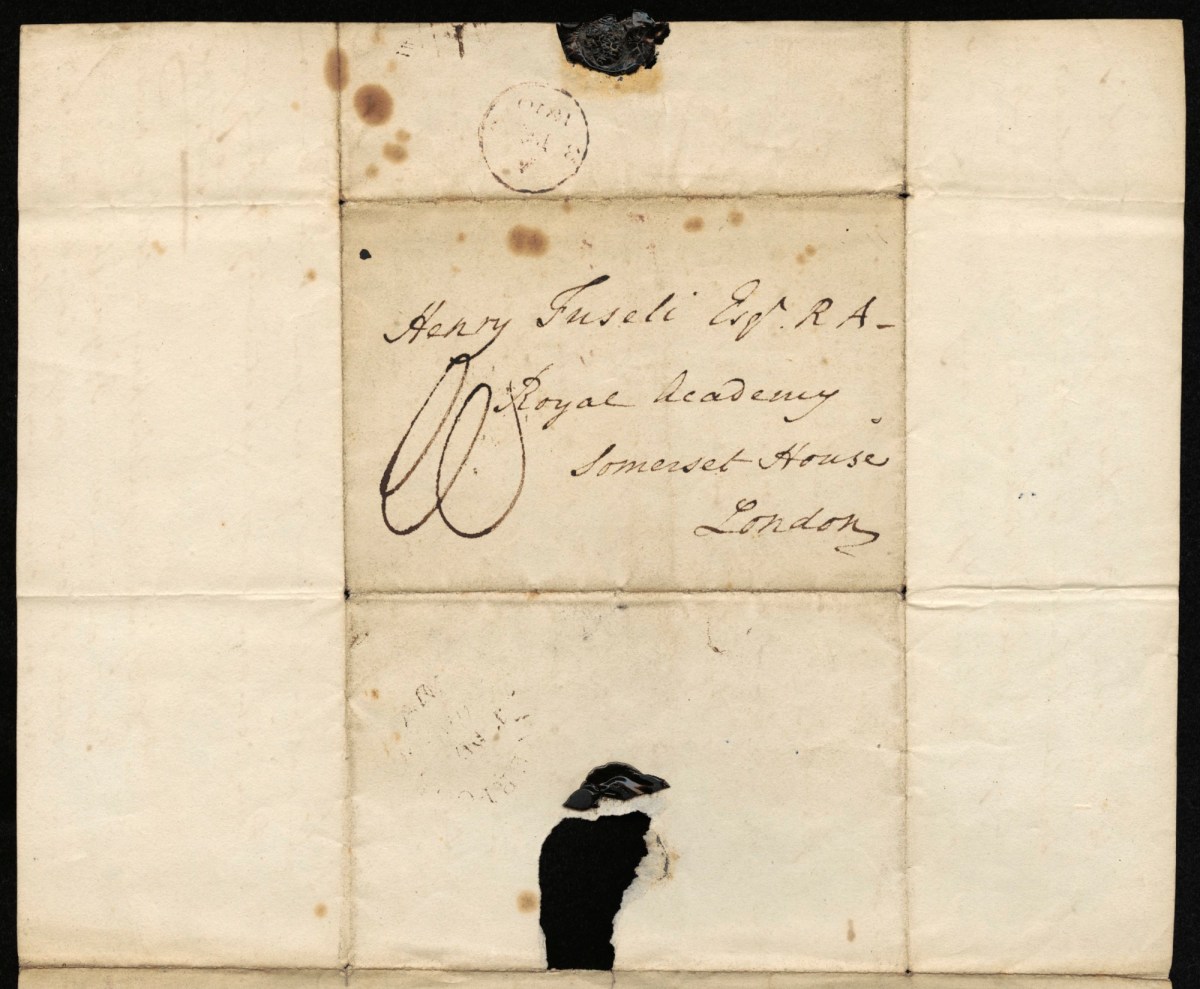 Henry Fuseli Esqr. R A-
Royal Academy
Somerset House
London